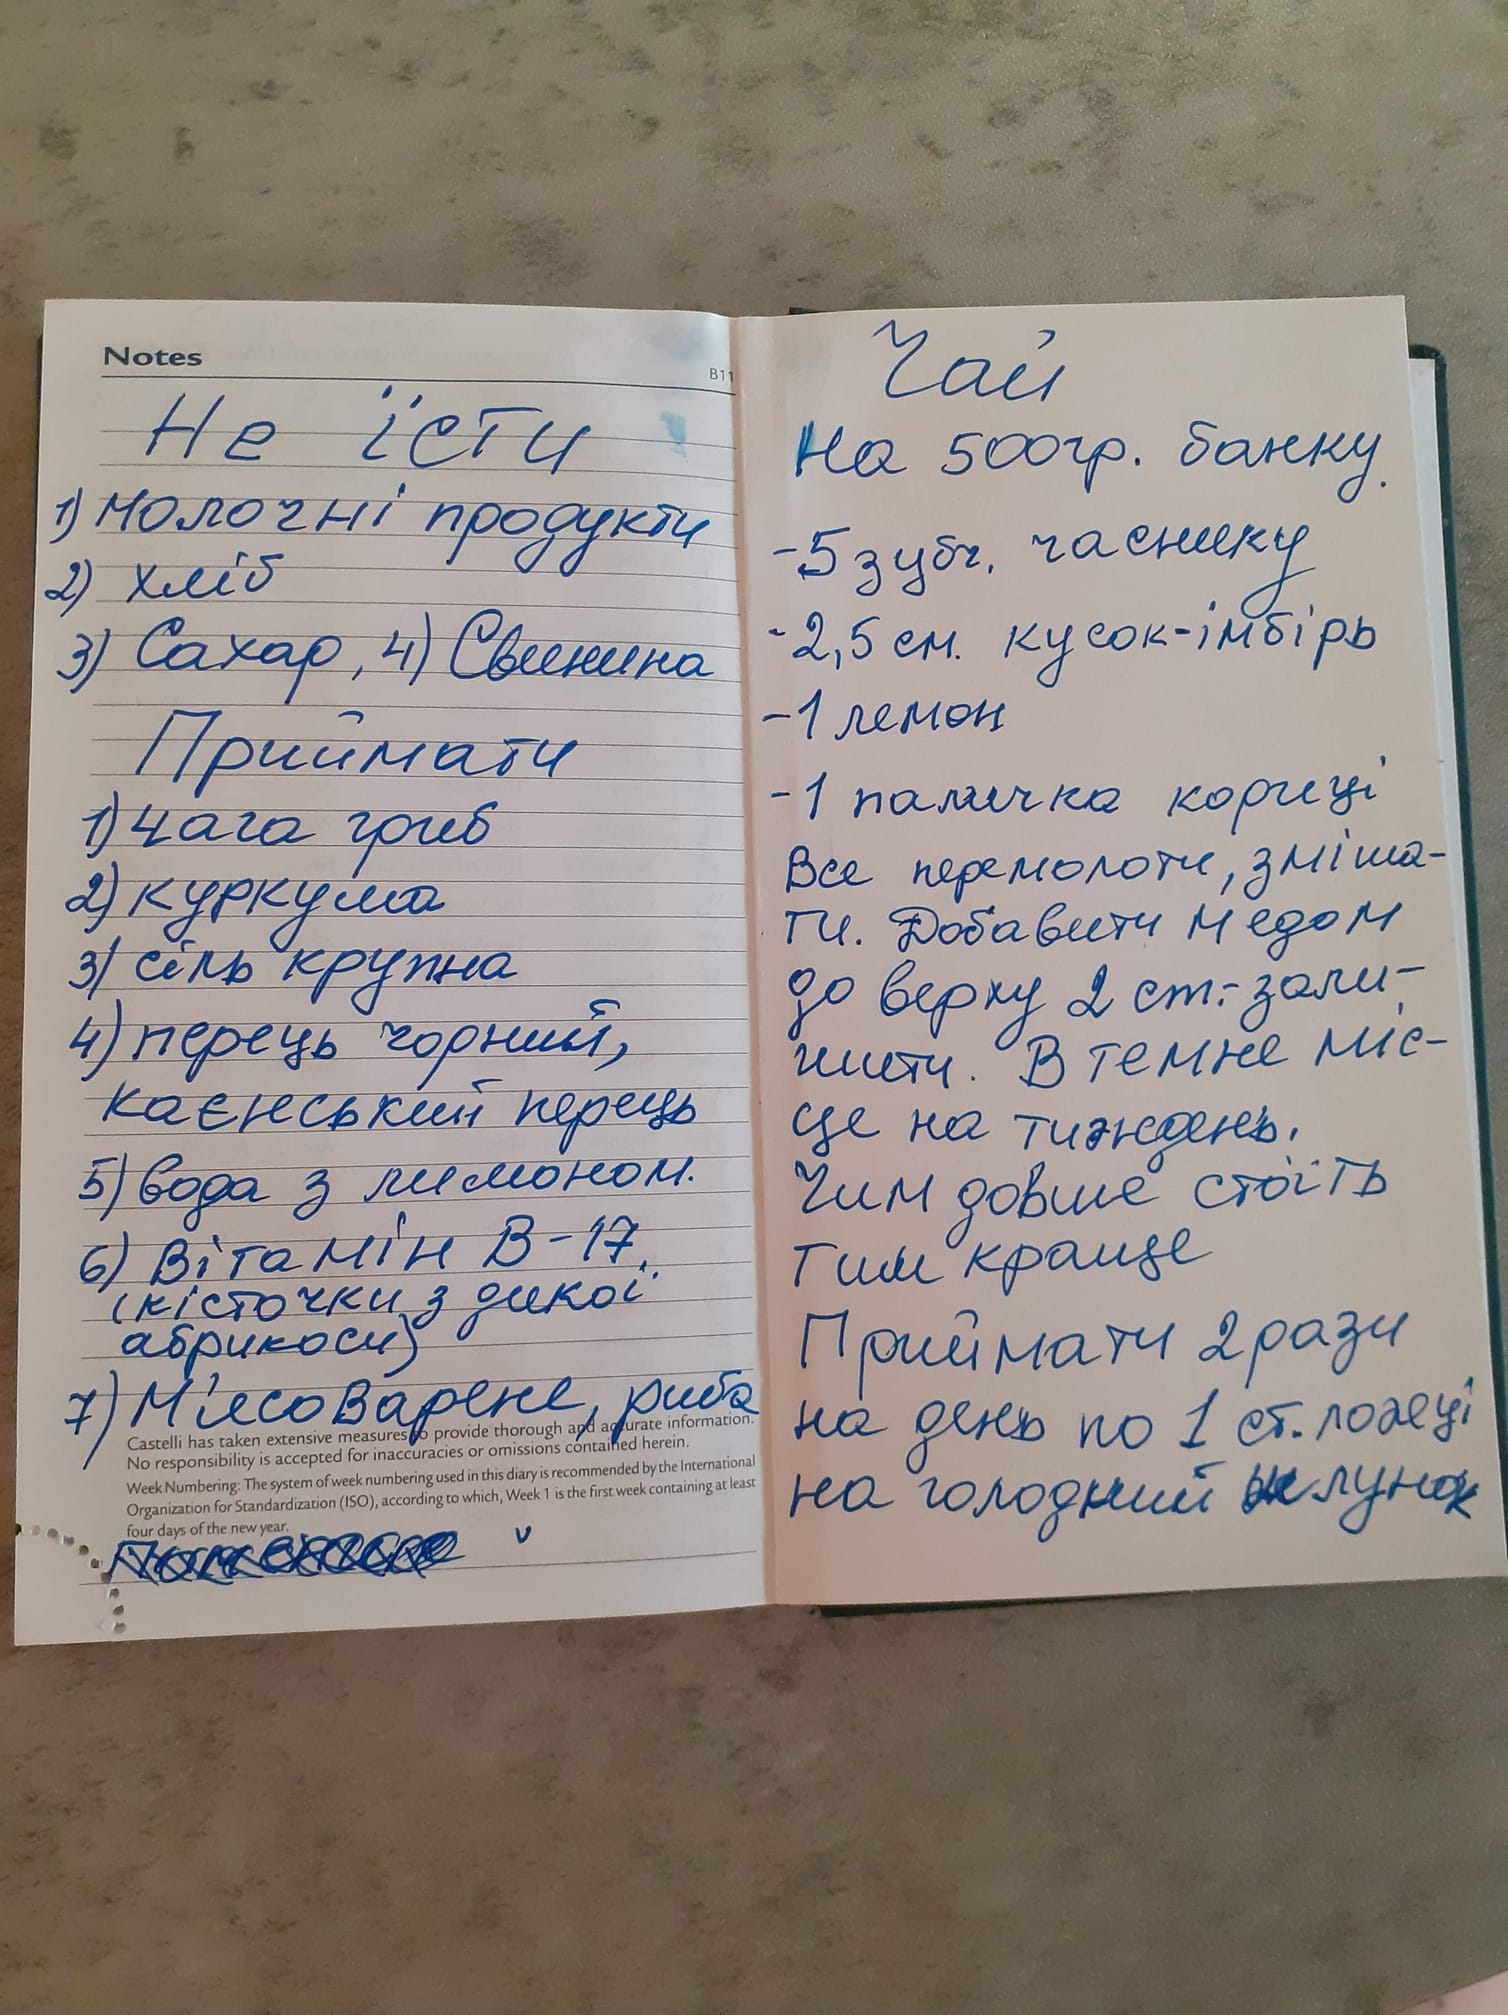 Notes
B11
Не їсти
1) молочні продукти
2) хліб
3) Сахар, 4) Свинина
Приймати
1) Чага гриб
2) куркума
3) сіль крупна
4) перець чорний,
каєнський перець
5) вода з лимоном.
6) Вітамін В-17
(кісточки з дикої
абрикоси)
7) М'ясо варене, риба
Castelli has taken extensive measures to provide thorough and accurate information.
No responsibility is accepted for inaccuracies or omissions contained herein.
Week Numbering: The system of week numbering used in this diary is recommended by the International
Organization for Standardization (ISO), according to which, Week 1 is the first week containing at least
four days of the new year.
Чай
На 500гр. банку.
-5 зубч. часнику
-2,5 см. кусок-імбірь
-1 лемон
-1 паличка кориці
Все перемолоти, зміша-
ти. Добавити медом
до верху 2 см.-зали-
шити. В темне міс-
це на тиждень.
Чим довше стоїть
тим краще
Приймати 2 рази
на день по 1 ст. ложці
на голодний шлунок